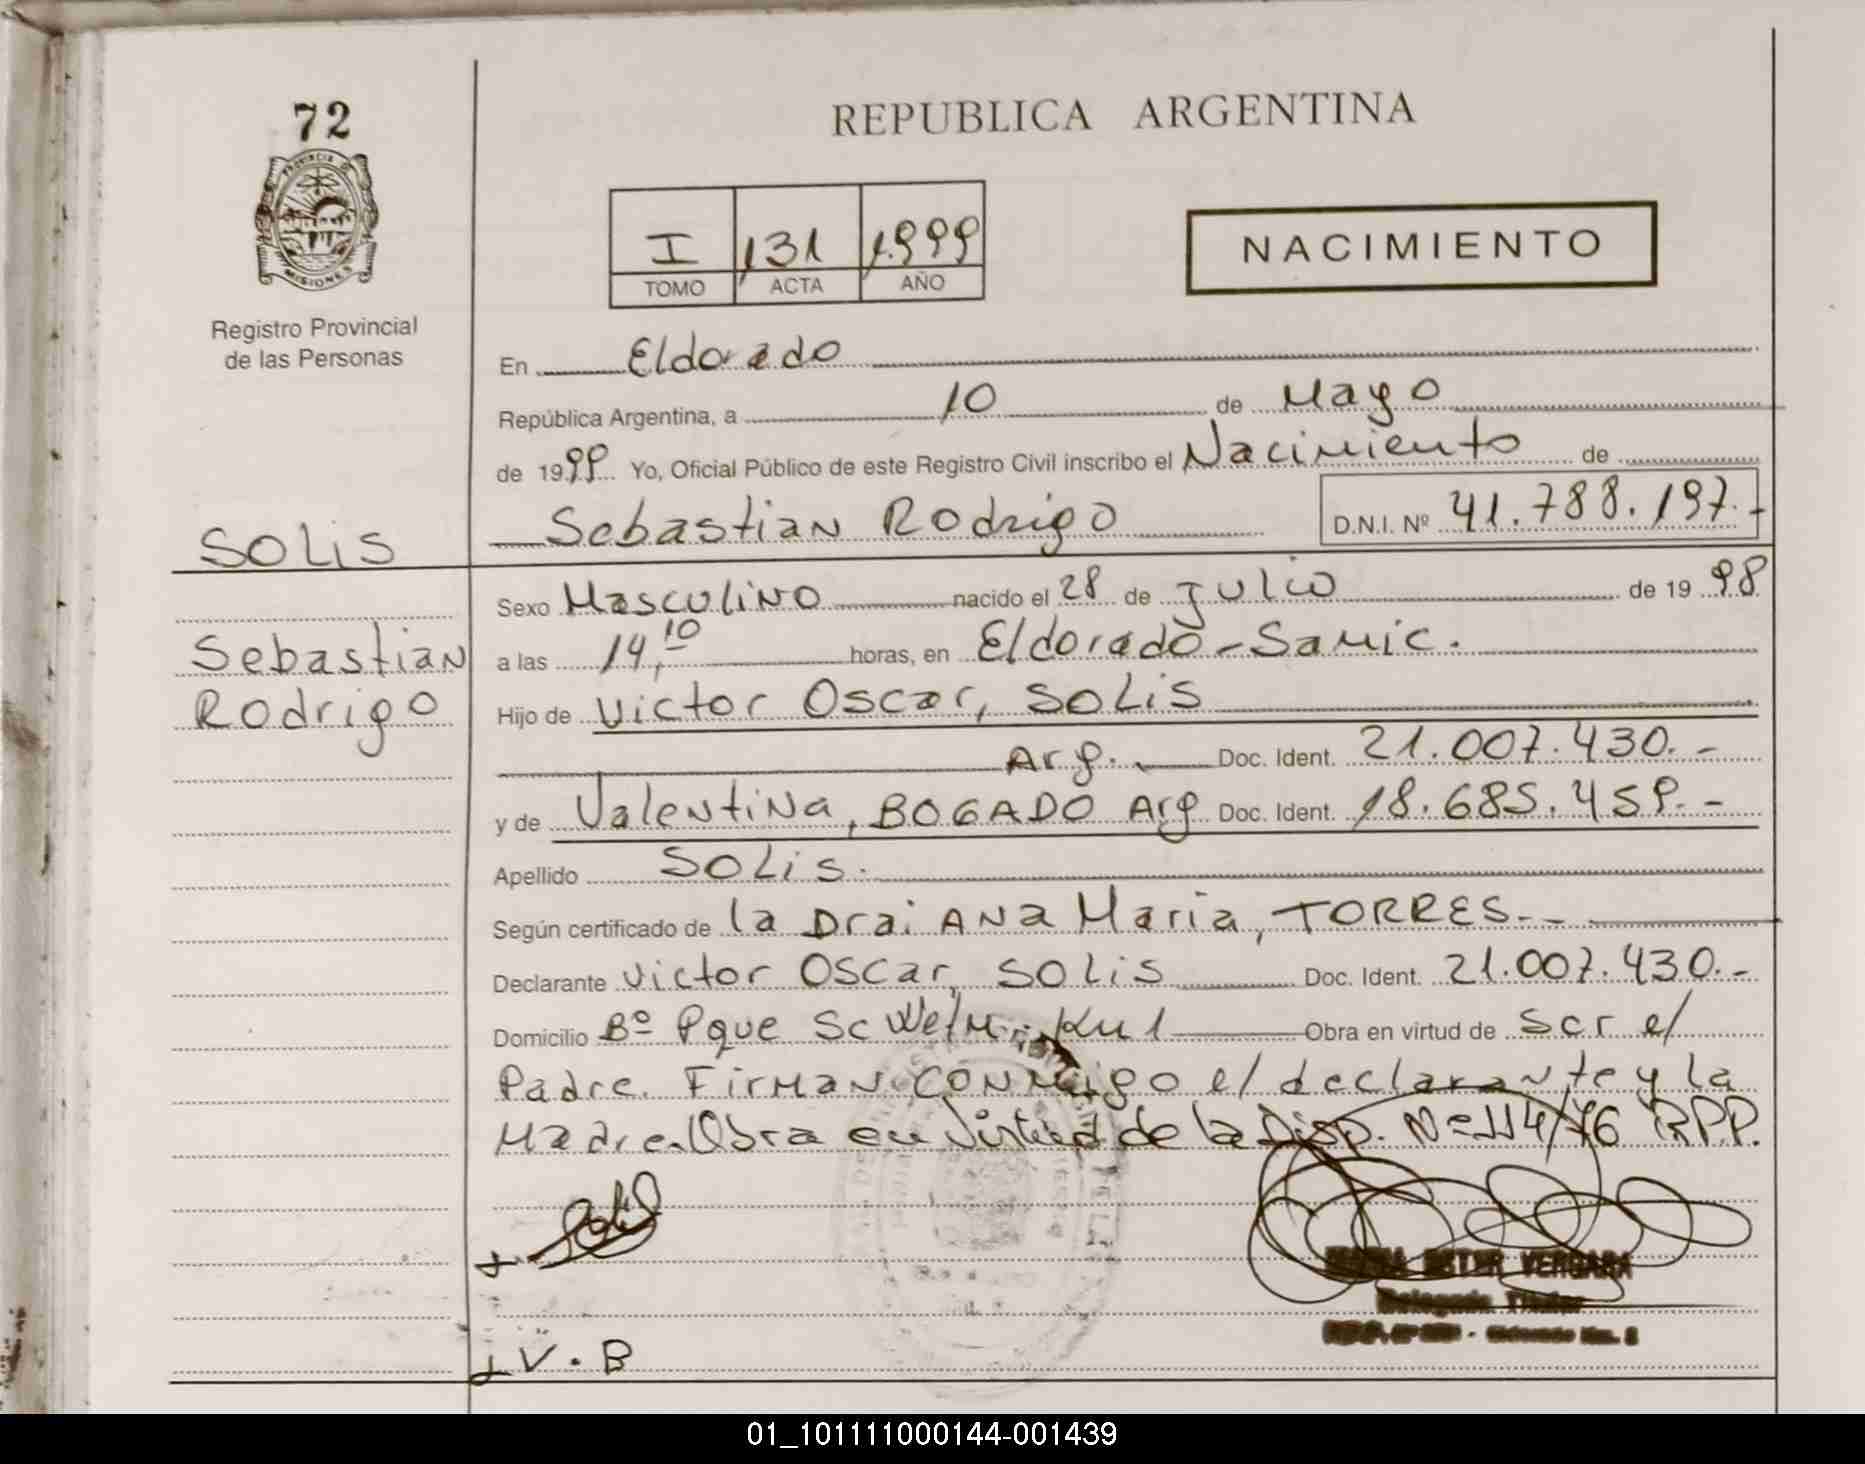 72
REPUBLICA ARGENTINA
PROVINCIA D
MISIONES
Registro Provincial
de las Personas
I 131 1.999
TOMO ACTA AÑO
NACIMIENTO
En Eldorado
República Argentina, a 10 de Mayo
de 1999 Yo, Oficial Público de este Registro Civil inscribo el Nacimiento de
Sebastian Rodrigo D.N.I. Nº 41.788.197.-
SOLIS
Sexo Masculino nacido el 28 de Julio de 19 98
Sebastian
Rodrigo
a las 14,10 horas, en Eldorado - Samic.
Hijo de Victor Oscar, SOLIS
Arg. Doc. Ident. 21.007.430.-
y de Valentina, BOGADO Arg Doc. Ident. 18.685.459.-
Apellido SOLIS.
Según certificado de la Dra: ANA Maria, TORRES.-
Declarante Victor Oscar, SOLIS Doc. Ident. 21.007.430.-
Domicilio Bº Pque Km 1 Obra en virtud de Ser el
Padre. Firman conmigo el declarante y la
Madre. Obra en Virtud de la Disp. Nº 114/76 RPP.
ESTER VERGARA
V. B
01_101111000144-001439